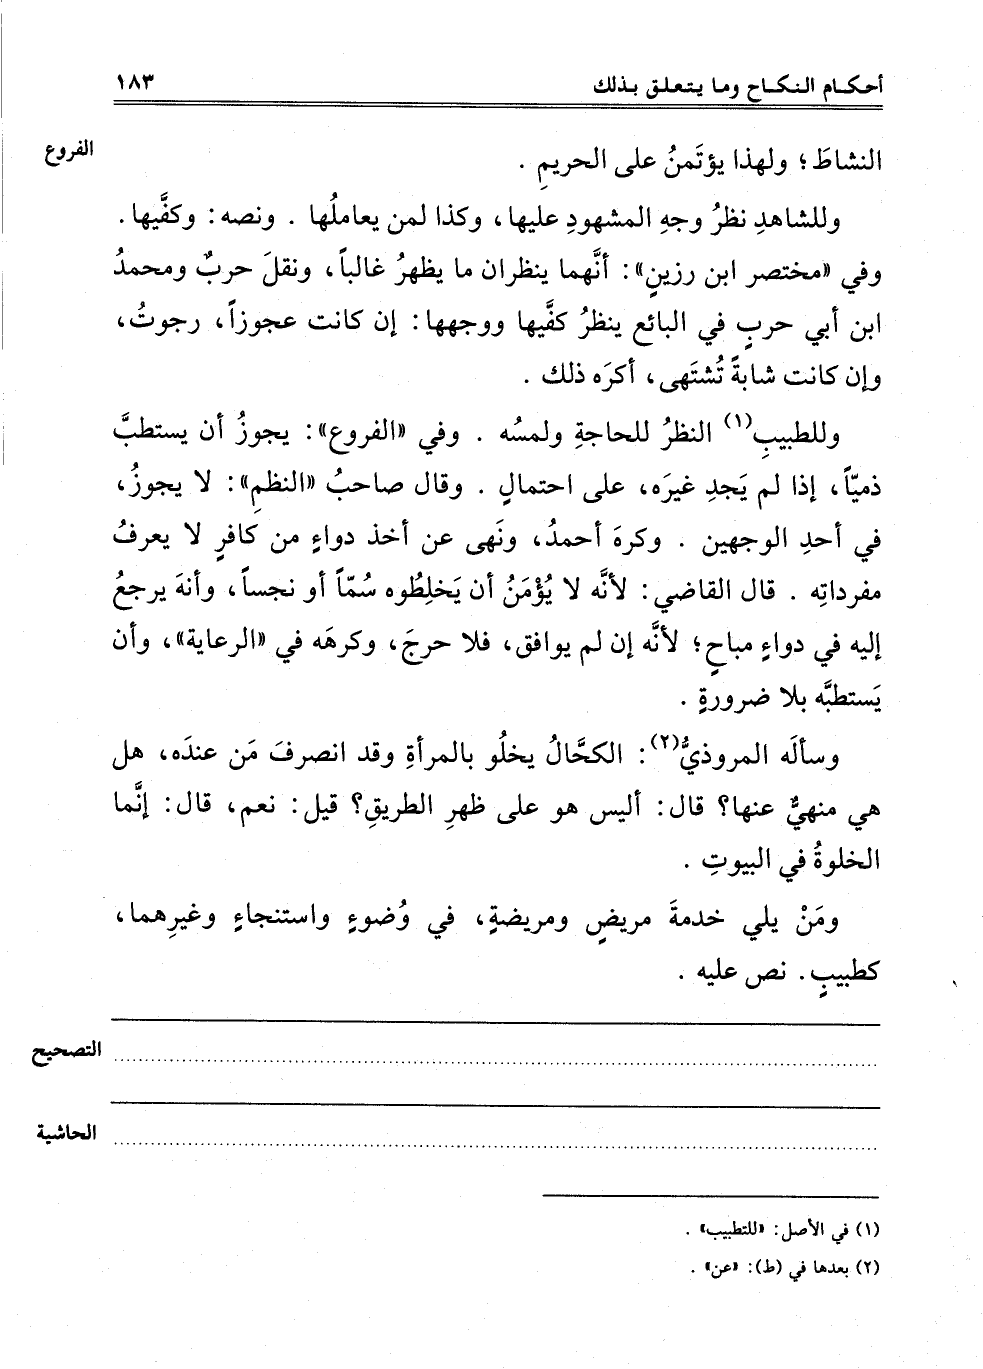 أحكام النكاح وما يتعلق بذلك ١٨٣
الفروع
النشاطَ؛ ولهذا يؤتَمنُ على الحريمِ .
وللشاهدِ نظرُ وجهِ المشهودِ عليها، وكذا لمن يعاملُها . ونصه: وكفَّيها.
وفي «مختصر ابن رزينٍ»: أنَّهما ينظران ما يظهرُ غالباً، ونقلَ حربٌ ومحمدُ
ابن أبي حربٍ في البائع ينظرُ كفَّيها ووجهها: إن كانت عجوزاً، رجوتُ،
وإن كانت شابةً تُشتَهى، أكرَه ذلك .
وللطبيبِ(١) النظرُ للحاجةِ ولمسُه . وفي «الفروع»: يجوزُ أن يستطبَّ
ذميّاً، إذا لم يَجدِ غيرَه، على احتمالٍ . وقال صاحبُ «النظمِ»: لا يجوزُ،
في أحدِ الوجهين . وكرهَ أحمدُ، ونَهى عن أخذ دواءٍ من كافرٍ لا يعرفُ
مفرداتِه . قال القاضي: لأنَّه لا يُؤْمَنُ أن يَخلِطُوه سُمّاً أو نجساً، وأنهَ يرجعُ
إليه في دواءٍ مباحٍ؛ لأنَّه إن لم يوافق، فلا حرجَ، وكرهَه في «الرعاية»، وأن
يَستطبَّه بلا ضرورةٍ .
وسألَه المروذيُّ(٢): الكحَّالُ يخلُو بالمرأةِ وقد انصرفَ مَن عندَه، هل
هي منهيٌّ عنها؟ قال: أليس هو على ظهرِ الطريقِ؟ قيل: نعم، قال: إنَّما
الخلوةُ في البيوتِ .
ومَنْ يلي خدمةَ مريضٍ ومريضةٍ، في وُضوءٍ واستنجاءٍ وغيرِهما،
كطبيبٍ. نص عليه .
التصحيح
الحاشية
(١) في الأصل: «للتطبيب» .
(٢) بعدها في (ط): «عن» .